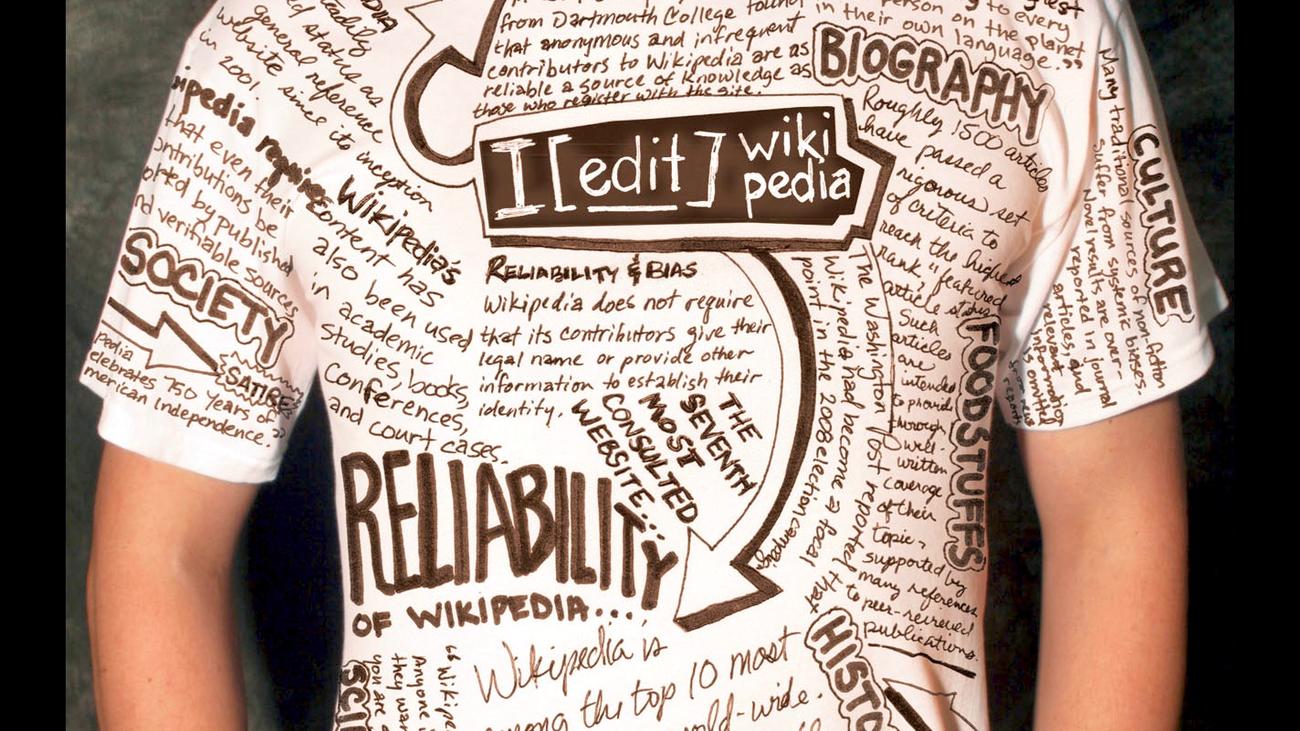 from Dartmouth College found
that anonymous and infrequent
contributors to Wikipedia are as
reliable a source of knowledge as
those who register with the site.
to every
person on the planet
in their own language."
BIOGRAPHY
Roughly 1500 articles
have passed a
rigorous set
of criteria to
reach the highest
rank "featured
article status
Such
articles
are
intended
to provide
through
well-
written
coverage
of their
topic,
supported by
many references
to peer-reviewed
publications.
CULTURE
Many traditional sources of non-fiction
suffer from systemic biases.
Novel results are over-
reported in journal
articles, and
relevant
FOODSTUFFS
general reference
website since its inception
in 2001
status as
steadily
wikipedia requires
that even their
contributions be
by published
and verifiable sources
SOCIETY
SATIRE
celebrates 750 years of
American independence."
Wikipedia's
content has
also been used
in academic
studies, books,
conferences,
and court cases.
I [edit] wiki
pedia
RELIABILITY & BIAS
Wikipedia does not require
that its contributors give their
legal name or provide other
information to establish their
identify.
THE
SEVENTH
MOST
CONSULTED
WEBSITE...
The Washington Post reported that
Wikipedia had become a focal
point in the 2008 election campaign
RELIABILITY
OF WIKIPEDIA...
Wikipedia is
among the top 10 most
world-wide.
HISTO
SCI
"Wikipe
Anyone i
they wan
you are